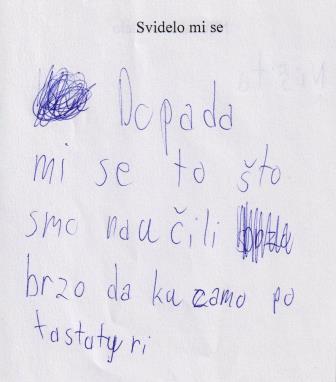 Svidelo mi se
Dopada
mi se to što
smo naučili
brzo da kucamo po
tastaturi